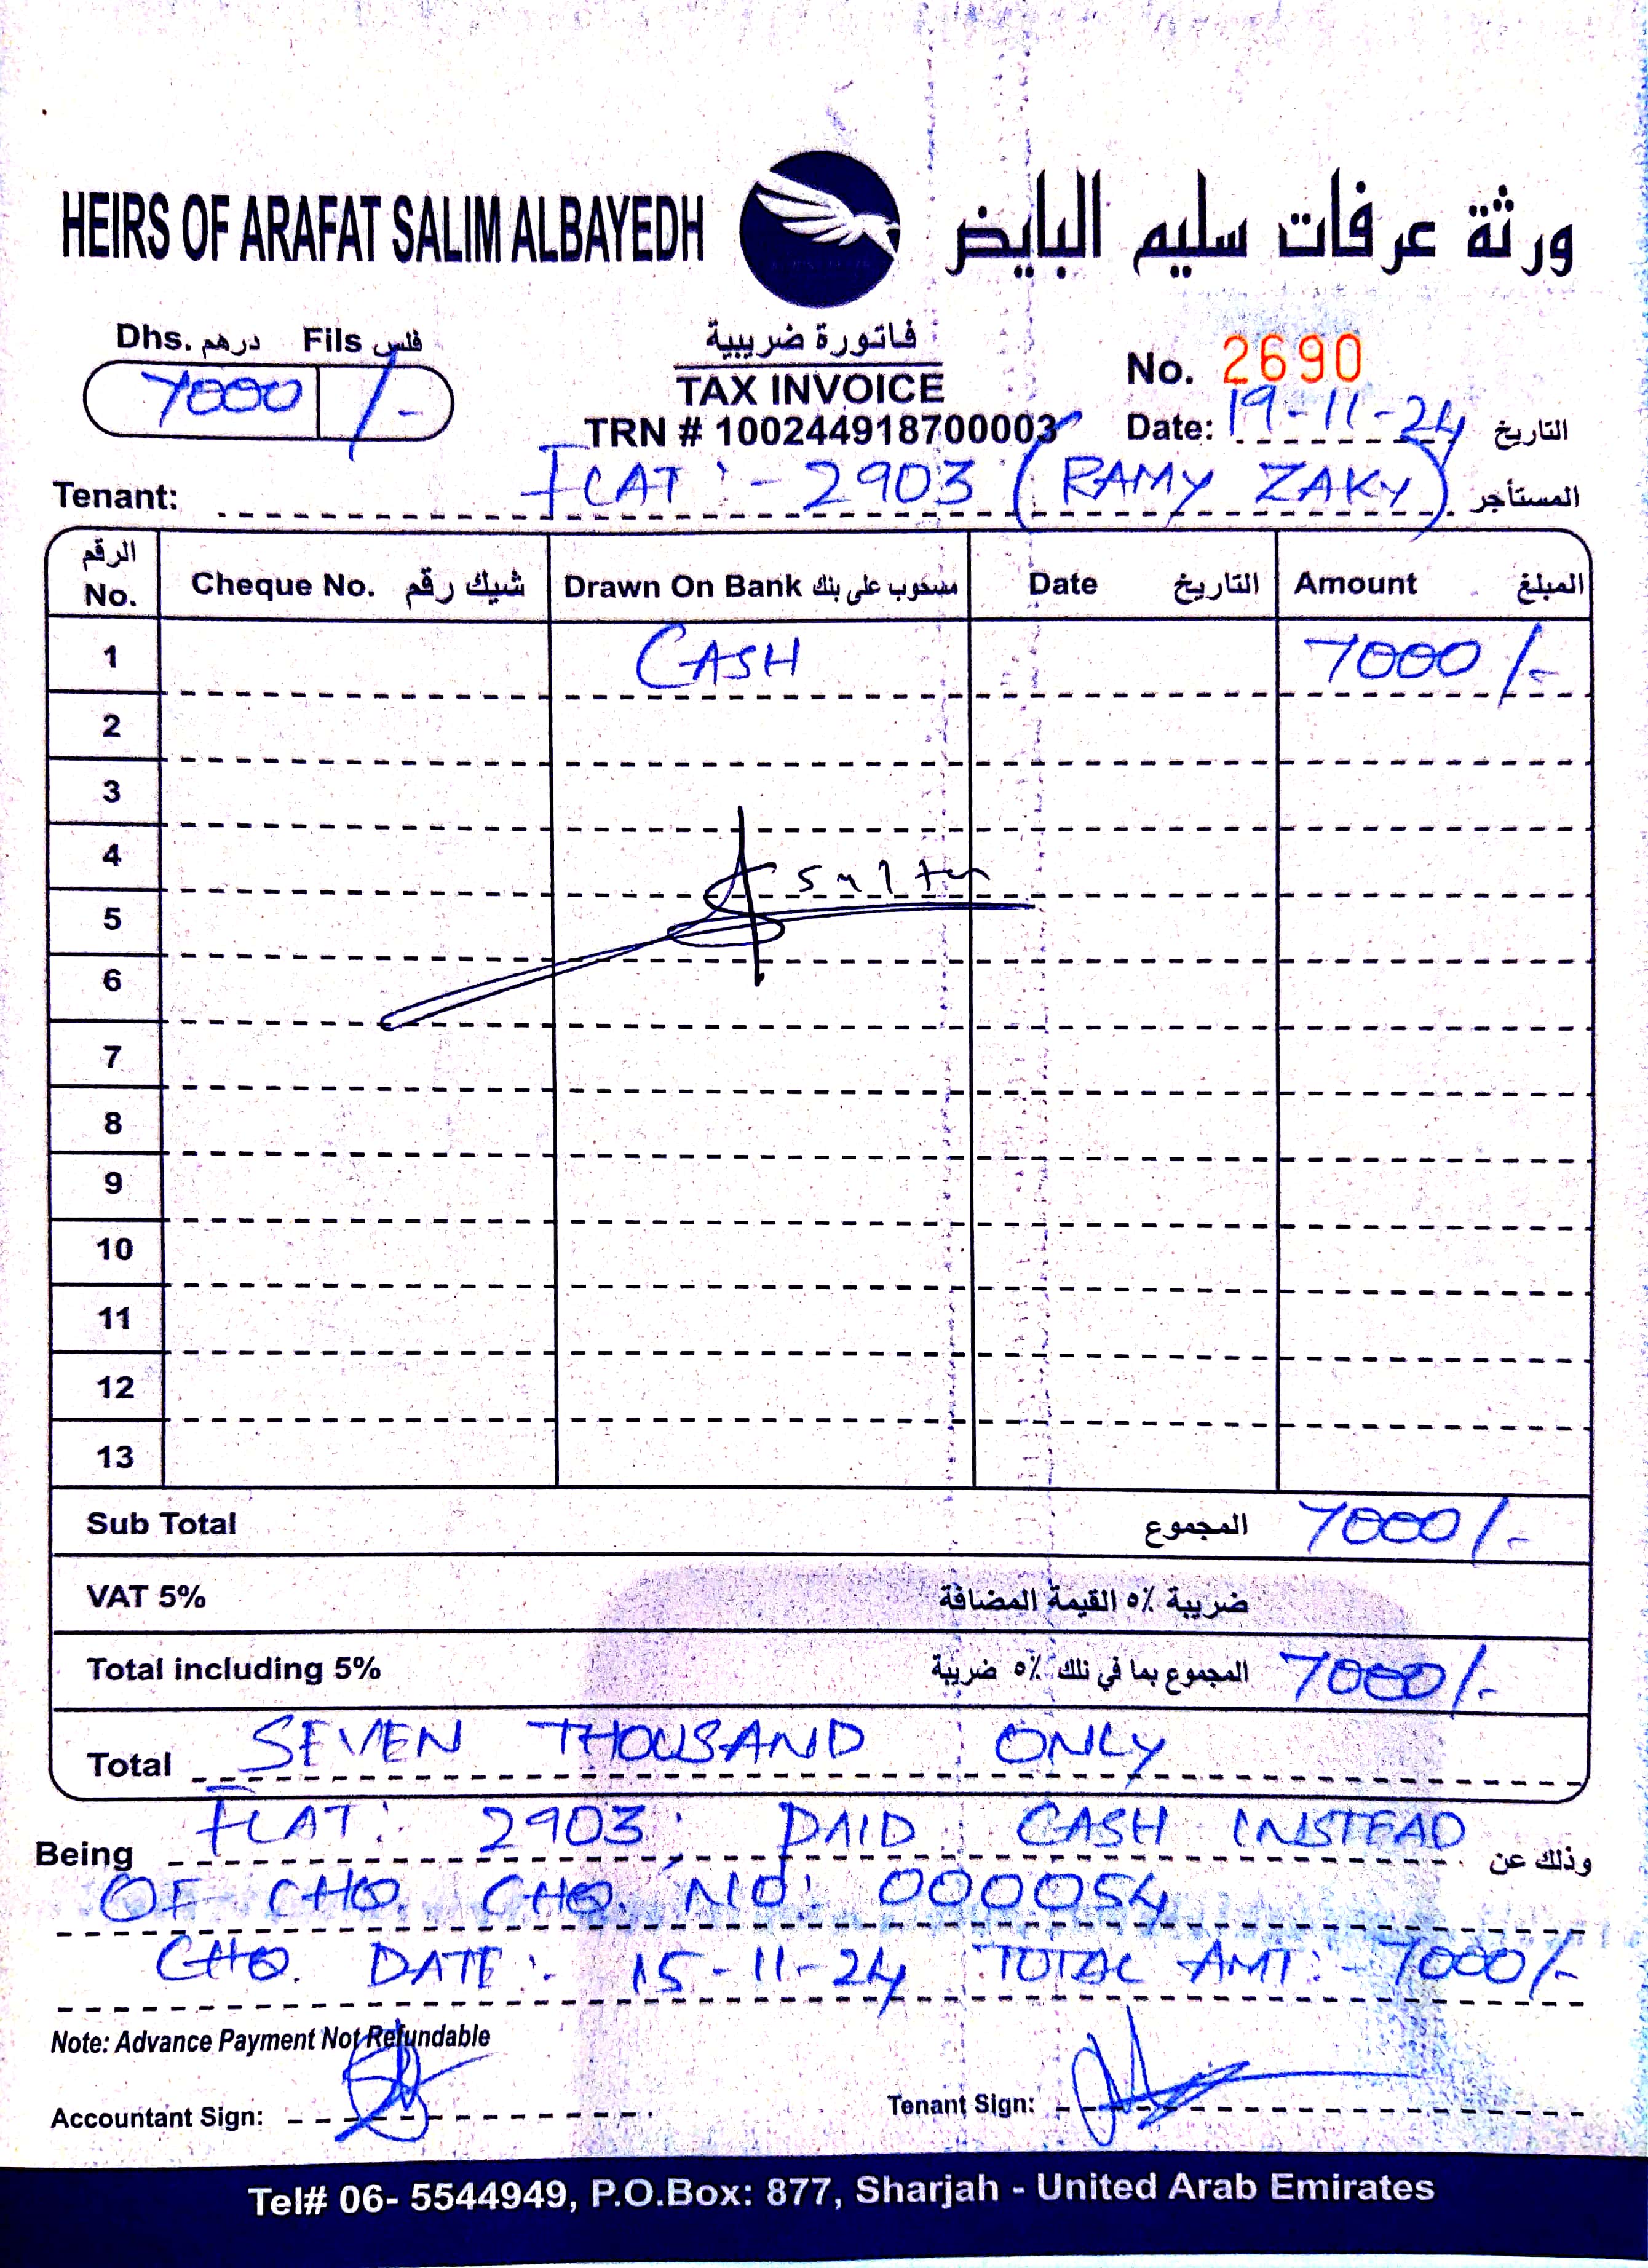 HEIRS OF ARAFAT SALIM ALBAYEDH ورثة عرفات سليم البايض
Dhs. درهم Fils فلس
7000 /-
فاتورة ضريبية
TAX INVOICE
TRN # 100244918700003
No. 2690
Date: 19-11-24 التاريخ
Tenant: FLAT:- 2903 (RAMY ZAKY) المستأجر
الرقم No. Cheque No. شيك رقم Drawn On Bank مسحوب على بنك Date التاريخ Amount المبلغ
1 CASH 7000/-
2
3
4
5
6
7
8
9
10
11
12
13
Sub Total المجموع 7000/-
VAT 5% ضريبة ٥٪ القيمة المضافة
Total including 5% المجموع بما في ذلك ٥٪ ضريبة 7000/-
Total SEVEN THOUSAND ONLY
Being FLAT: 2903; PAID CASH INSTEAD وذلك عن
OF CHQ. CHQ. NO: 000054
CHQ. DATE:- 15-11-24 TOTAL AMT:- 7000/-
Note: Advance Payment Not Refundable
Accountant Sign: Tenant Sign:
Tel# 06- 5544949, P.O.Box: 877, Sharjah - United Arab Emirates